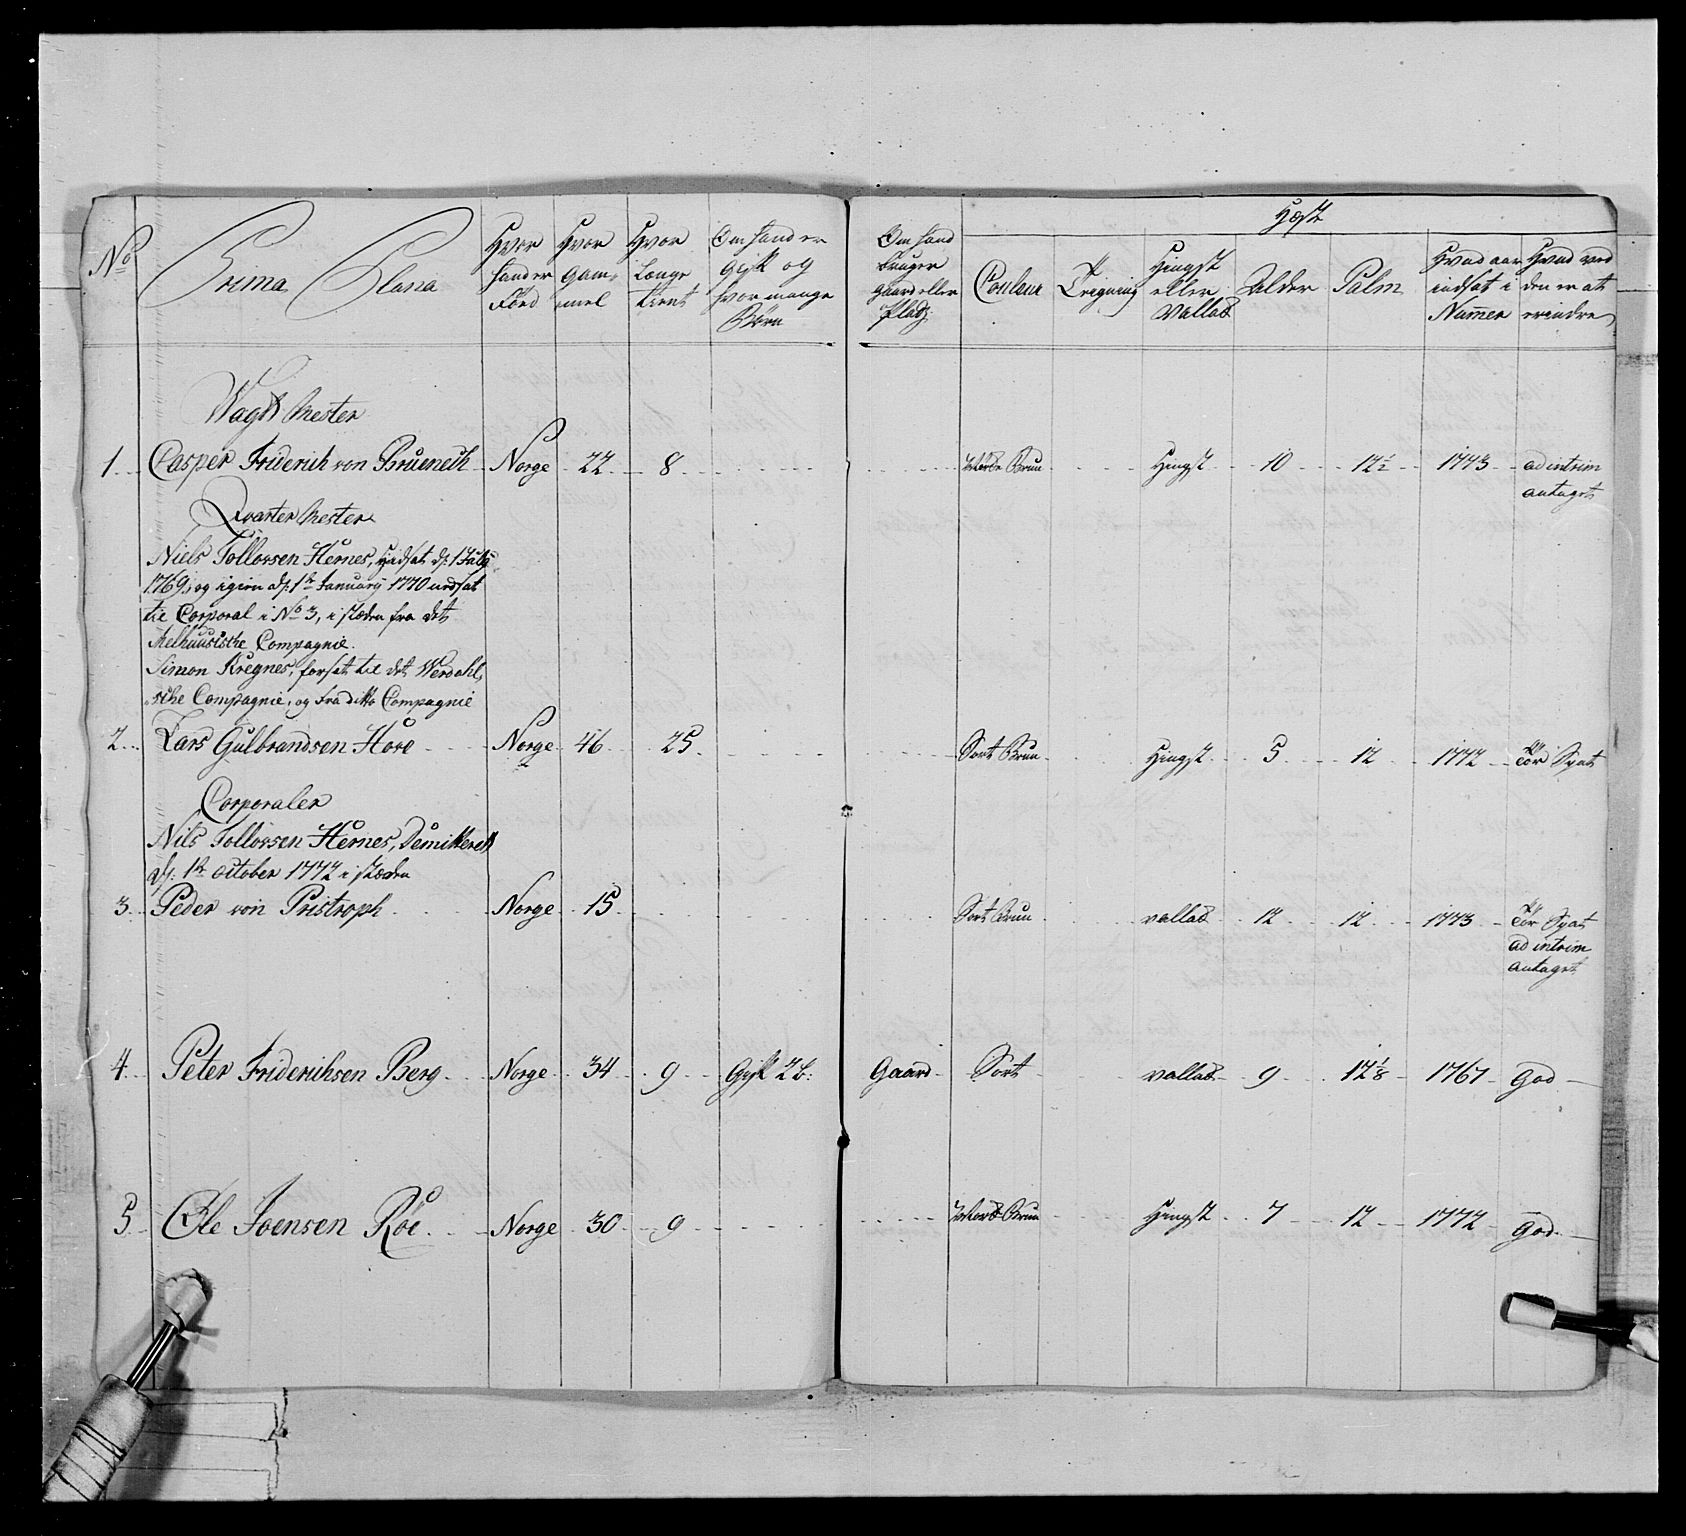 No
Prima Plana
Hvor hand er Fød
Hvor gammel
Hvor længe tient
Om hand er gift og hvor mange Børn
Om hand bruger gaard eller Plads
Hæst
Couleur
Teigning
Hingst eller Vallad
Alder
Palm
Hvad aar indsat i Numer
Hvad ved den er at erindre
Wagt Mester
1 Casper Friderich von Brueneck Norge 22 8 Brun Hingst 10 12½ 1773 ad intrim
antaget
Qvarter Mester
Niels Tollovsen Hernes, 1 July
1769, og igien d. 1te January 1770 nedsat
til Corporal i No 3, i stæden fra det
Melhuusische Compagnie.
Simon Kregnes, forsat til det Werdahl,
sche Compagnie, og fra ditto Compagnie
2 Lars Gulbrandsen Hove Norge 46 25 Sort Brun Hingst 5 12 1772 Tør Spat
Corporaler
Nils Tollovsen Hernes, Demitteret
d. 1te october 1772 i stæden
3 Peder von Pristroph Norge 15 Sort Brun vallad 12 12 1773 Tør Spat
ad intrim
antaget
4 Peter Friderichsen Berg Norge 34 9 Gift 2 b: Gaard Sort vallad 9 12⅛ 1767 God
5 Ole Joensen Røe Norge 30 9 Brun Hingst 7 12 1772 God